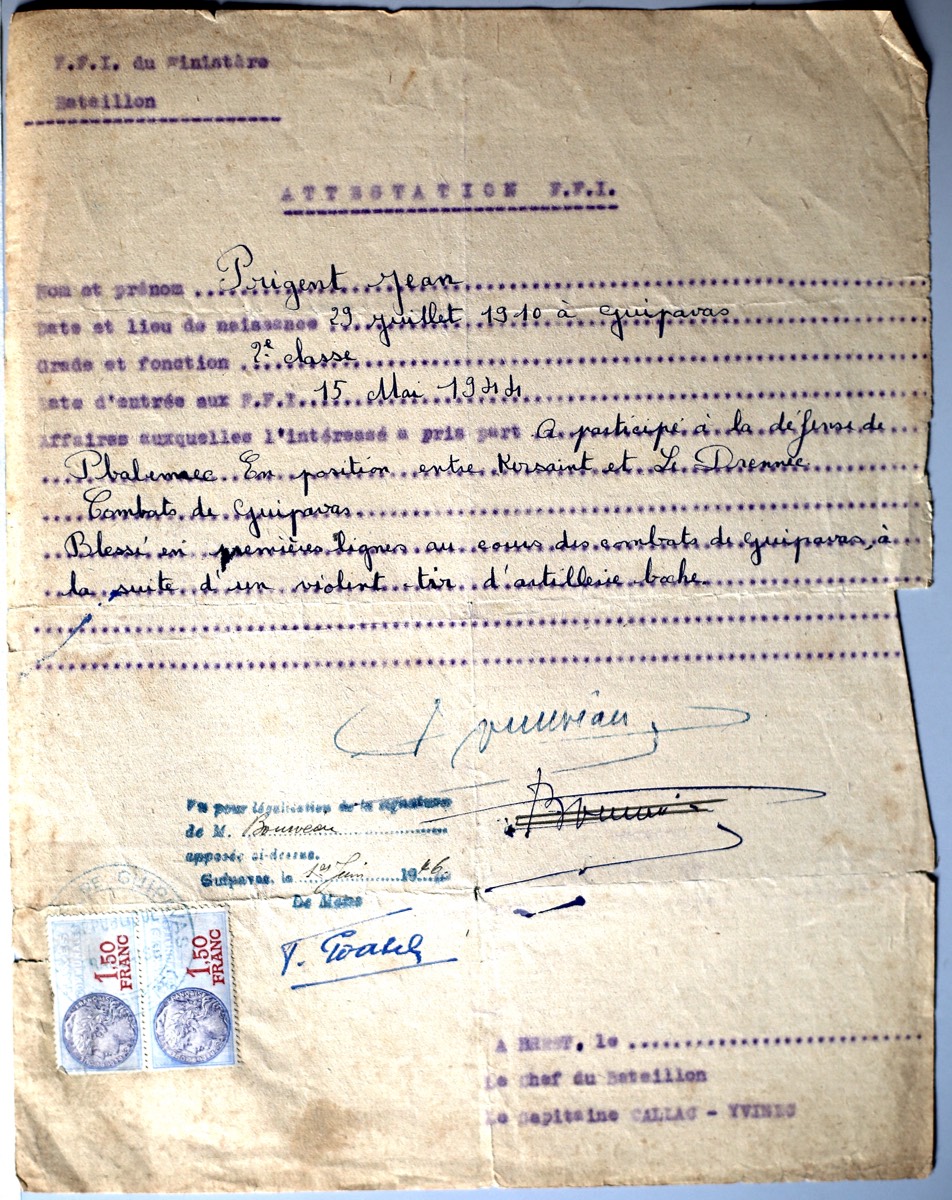 F.F.I. du Finistère
Bataillon
ATTESTATION F.F.I.
Nom et prénom Prigent Jean
Date et lieu de naissance 29 Juillet 1910 à Guipavas
Grade et fonction 2e classe
Date d'entrée aux F.F.I. 15 Mai 1944
Affaires auxquelles l'intéressé a pris part A participé à la défense de
En position entre Kersaint et Le Drennec
Combats de Guipavas
Blessé en premières lignes au cours des combats de Guipavas, à
la suite d'un violent tir d'artillerie boche
Vu pour légalisation de la signature
de M. Bouveau
apposée ci-dessus.
Guipavas, le 1er Juin 1946
De Maire
GUIPAVAS
1,50 FRANC
1,50 FRANC
A BREST, le
Le Chef du Bataillon
Le Capitaine CALLAC - YVINEC